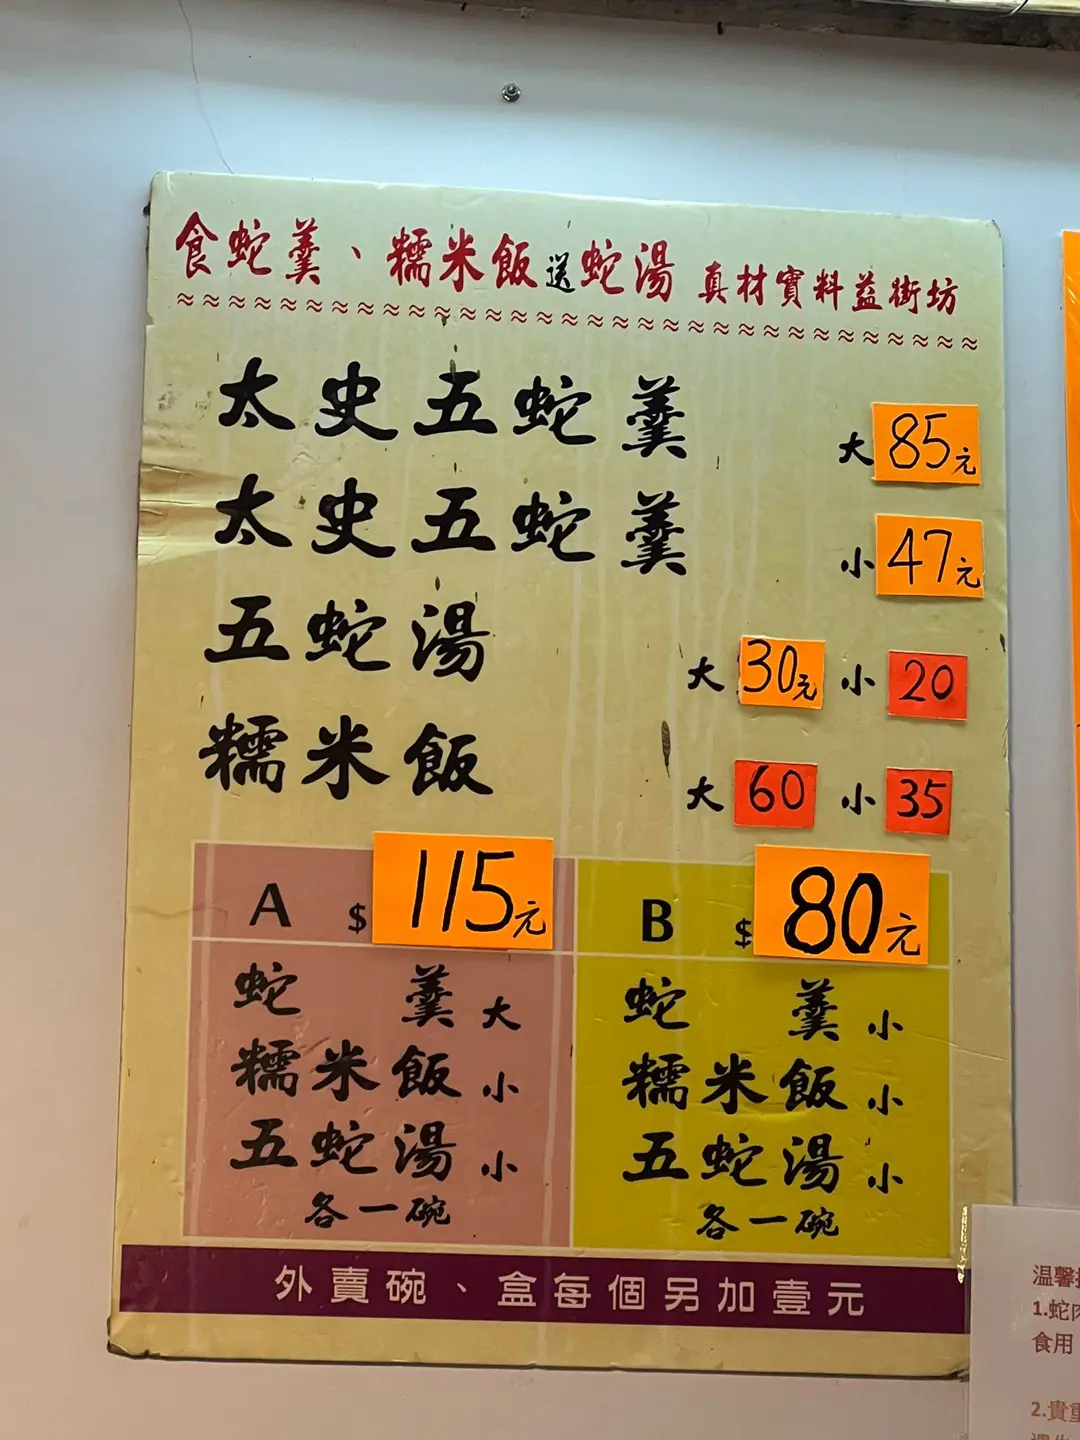 食蛇羹、糯米飯送蛇湯 真材實料益街坊
太史五蛇羹 大 85元
太史五蛇羹 小 47元
五蛇湯 大 30元 小 20
糯米飯 大 60 小 35
A $ 115元
蛇 羹 大
糯米飯 小
五蛇湯 小
各一碗
B $ 80元
蛇 羹 小
糯米飯 小
五蛇湯 小
各一碗
外賣碗、盒每個另加壹元
温馨
1.蛇肉
食用
2.貴重